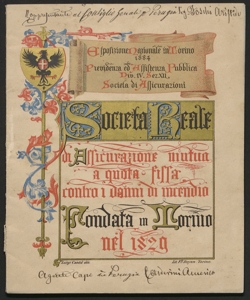 Esposizione Nazionale in Torino
1884
Previdenza ed Assistenza Pubblica
Div. IV. Sez. XII.
Società di Assicurazioni
Società Reale
di Assicurazione mutua
a quota fissa
contro i danni di incendio
Fondata in Torino
nel 1829
Agente Capo in Perugia